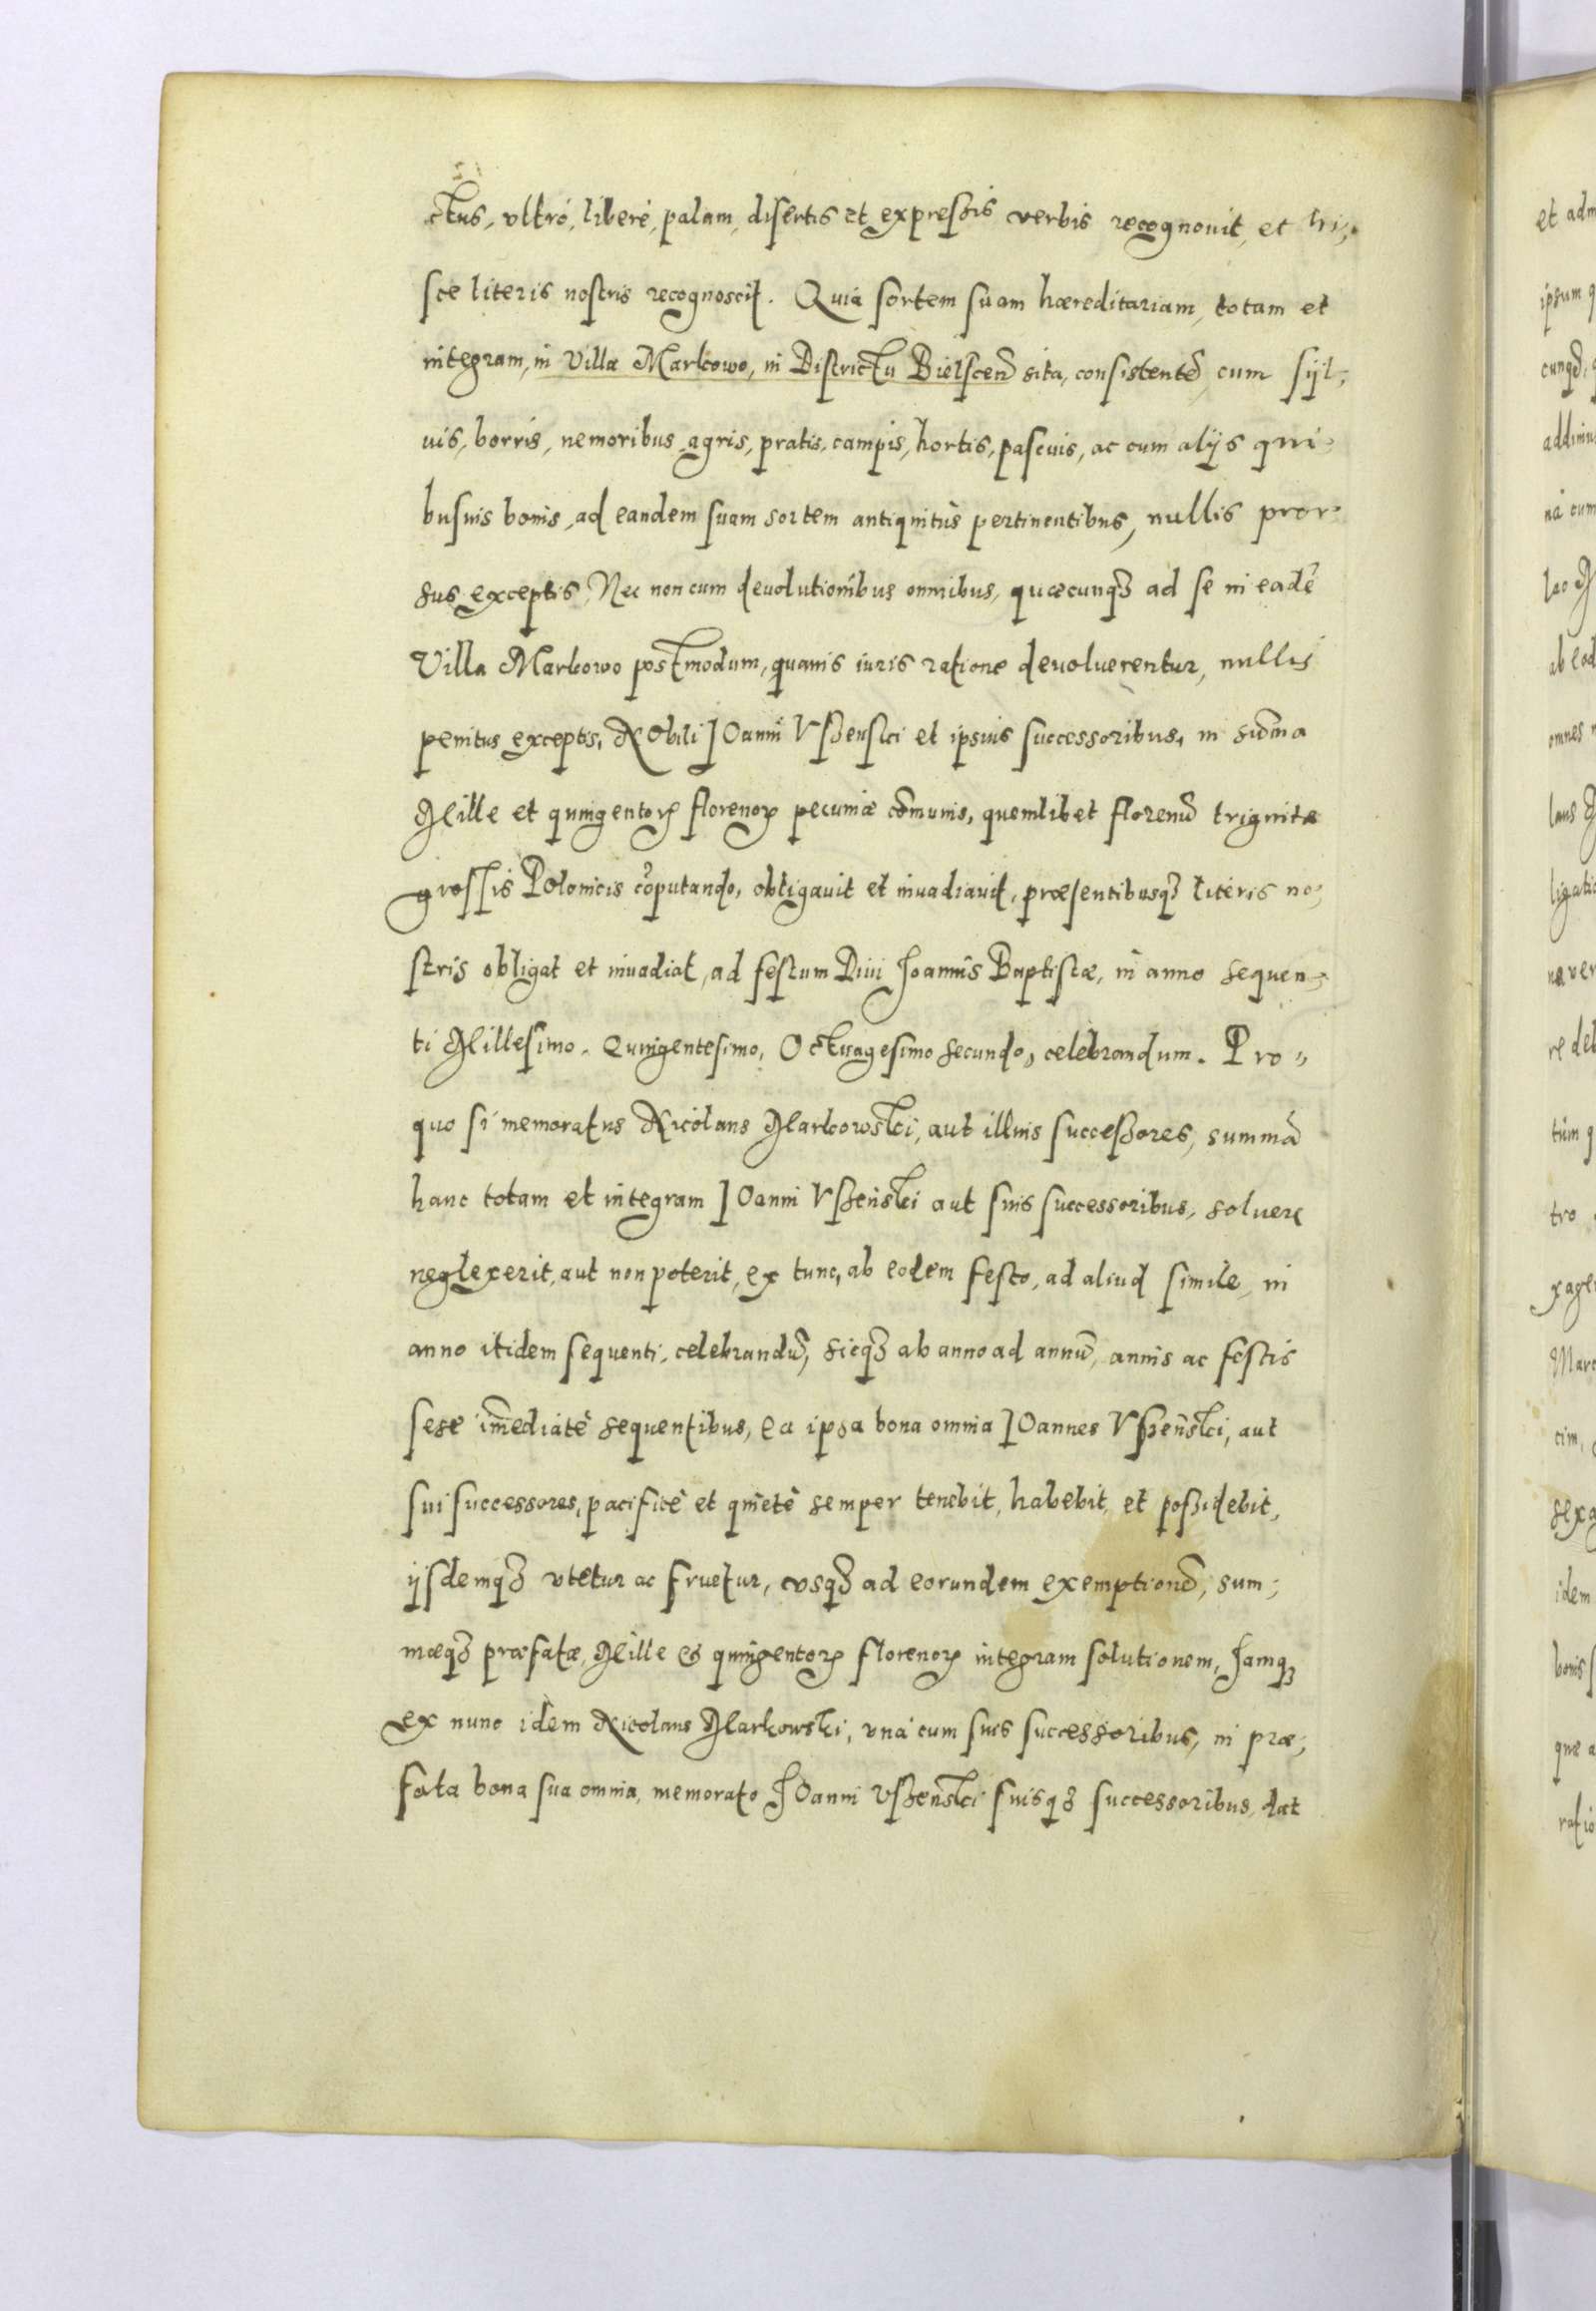 ctus, vltró, liberè, palam, disertis et expreßis verbis recognouit, et hi,
sce literis nostris recognoscit. Quia sortem suam hæreditariam, totam et
integram, in Villa Markowo, in Districtu Bielscen̄ sita, consistentē, cum syl,
uis, borris, nemoribus, agris, pratis, campis, hortis, pascuis, ac cum alijs qui,
busuis bonis, ad eandem suam sortem antiquitùs pertinentibus, nullis pror,
sus exceptis, Nec non cum deuolutionibus omnibus, quæcunqꝫ ad se in eadē
Villa Markowo postmodum, quauis iuris ratione deuoluerentur, nullis
penitus exceptis, Nobili IOanni Vßenski et ipsius successoribus, in sum̄a
Mille et quingentoꝝ florenoꝝ pecuniæ com̄unis, quemlibet florenū triginta
grossis Polonicis cōputando, obligauit et inuadiauit, præsentibusqꝫ literis no,
stris obligat et inuadiat, ad festum Diui Joannis Baptistæ, in anno sequen,
ti Millesimo. Quingentesimo, Octuagesimo secundo, celebrandum. Pro,,
quo si memoratus Nicolaus Markowski, aut illius succeßores, summā
hanc totam et integram IOanni Vßenski aut suis successoribus, soluere
neglexerit, aut non poterit, ex tunc, ab eodem festo, ad aliud simile, in
anno itidem sequenti, celebrandū, sicqꝫ ab anno ad annū, annis ac festis
sese im̄ediatè sequentibus, ea ipsa bona omnia IOannes Vßenski, aut
sui successores, pacificè et quietè semper tenebit, habebit, et poßidebit,
ijsdemqꝫ vtetur ac fruetur, vsqꝫ ad eorundem exemptionē, sum,
mæqꝫ præfatæ, Mille & quingentoꝝ florenoꝝ integram solutionem, Jamqꝫ
ex nunc idem Nicolaus Markowski, vnà cum suis successoribus, in præ,
fata bona sua omnia, memorato JOanni Vßenski suisqꝫ successoribus, dat
et adm
ipsum q
cunqꝫ,
addimus
nà cum
ab eod
omnes
laus M
ligatio
re deb
tùm q
tro
xage
Marc
cim,
sexa
idem
bonis s
quæ a
ratio